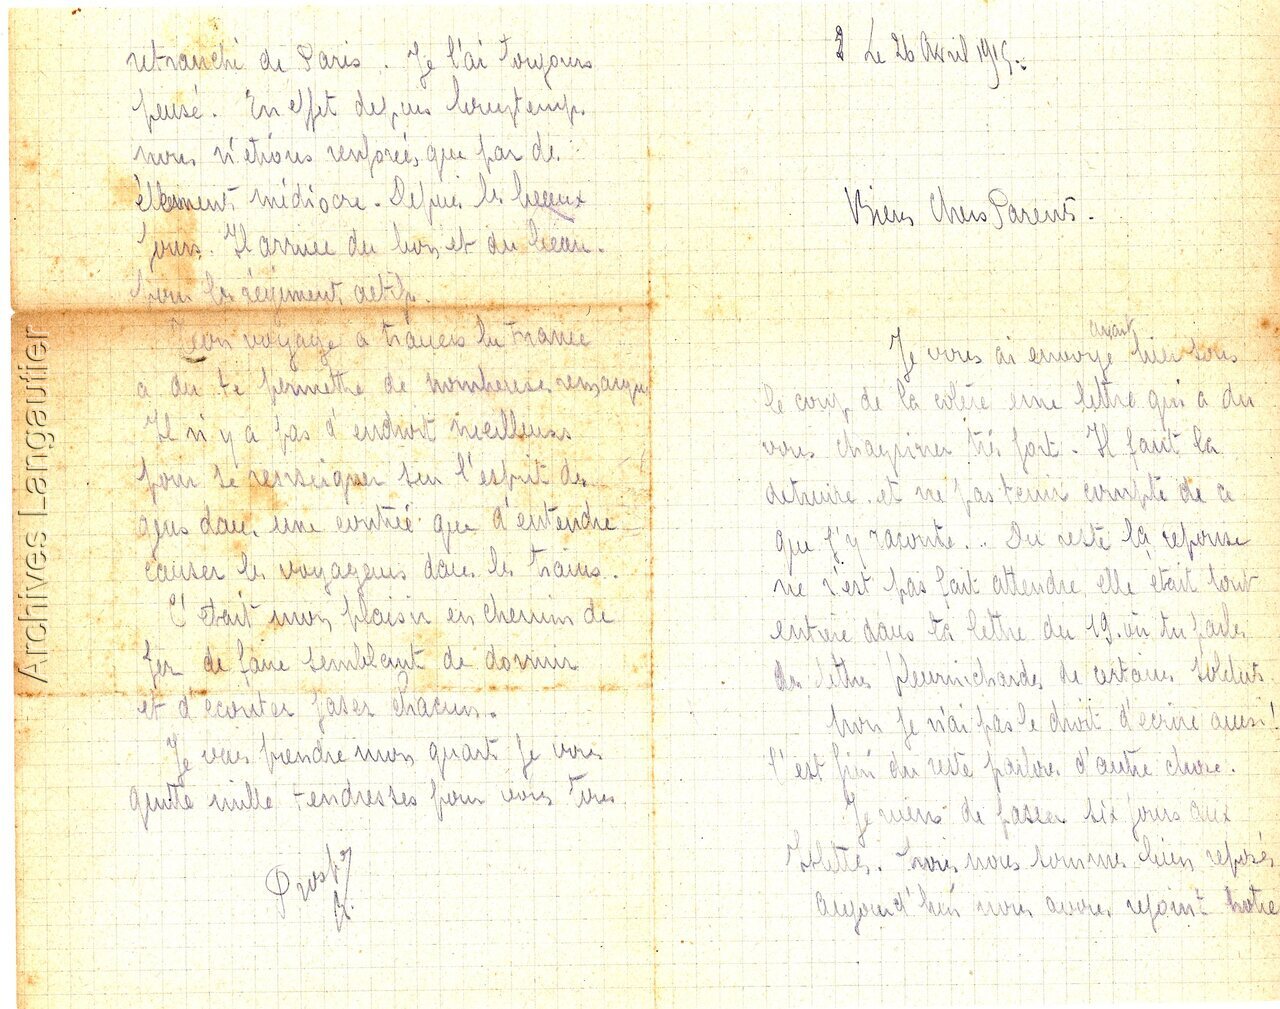 Le 26 Avril 1915.
Biens Chers Parents.
avant
Je vous ai envoyé hier sous
le coup de la colère une lettre qui a du
vous chagriner très fort. Il faut la
detruire et ne pas tenir compte de ce
que j'y raconte... Du reste la reponse
ne s'est pas fait attendre elle était tout
entière dans ta lettre du 19. où tu parles
des lettres pleurnichardes de certains soldats.
Non je n'ai pas le droit d'écrire aussi!
C'est fini du reste parlons d'autre chose.
Je viens de passer six jours aux
Islettes. nous sommes bien reposés
aujourd'hui nous avons rejoint notre
retranché de Paris. Je l'ai toujours
pensé. En effet depuis longtemps
nous n'étions renforcés que par de
élément médiocre. Depuis les beaux
jours. Il arrive du bon et du beau.
Pour les régiments actifs.
Ton voyage a travers la France
a du te permettre de nombreuses remarques
Il n'y a pas d'endroit meilleurs
pour se renseigner sur l'esprit des
gens dans une contrée que d'entendre
causer les voyageurs dans les trains.
C'était mon plaisir en chemin de
fer de faire semblant de dormir
et d'écouter jaser chacun.
Je vais prendre mon quart je vous
quitte mille tendresses pour vous tous
Prosper
Archives Langautier